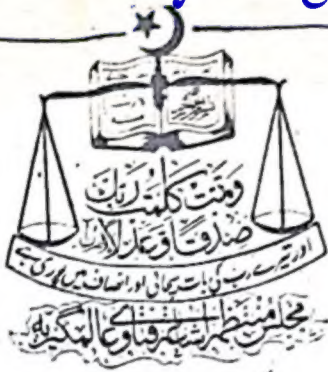 وتمت كلمت ربك
صدقا وعدلا
اور تیرے رب کی بات سچائی اور انصاف میں پوری ہے
مجلس منتظمہ اشاعت فتاوی عالمگیریہ